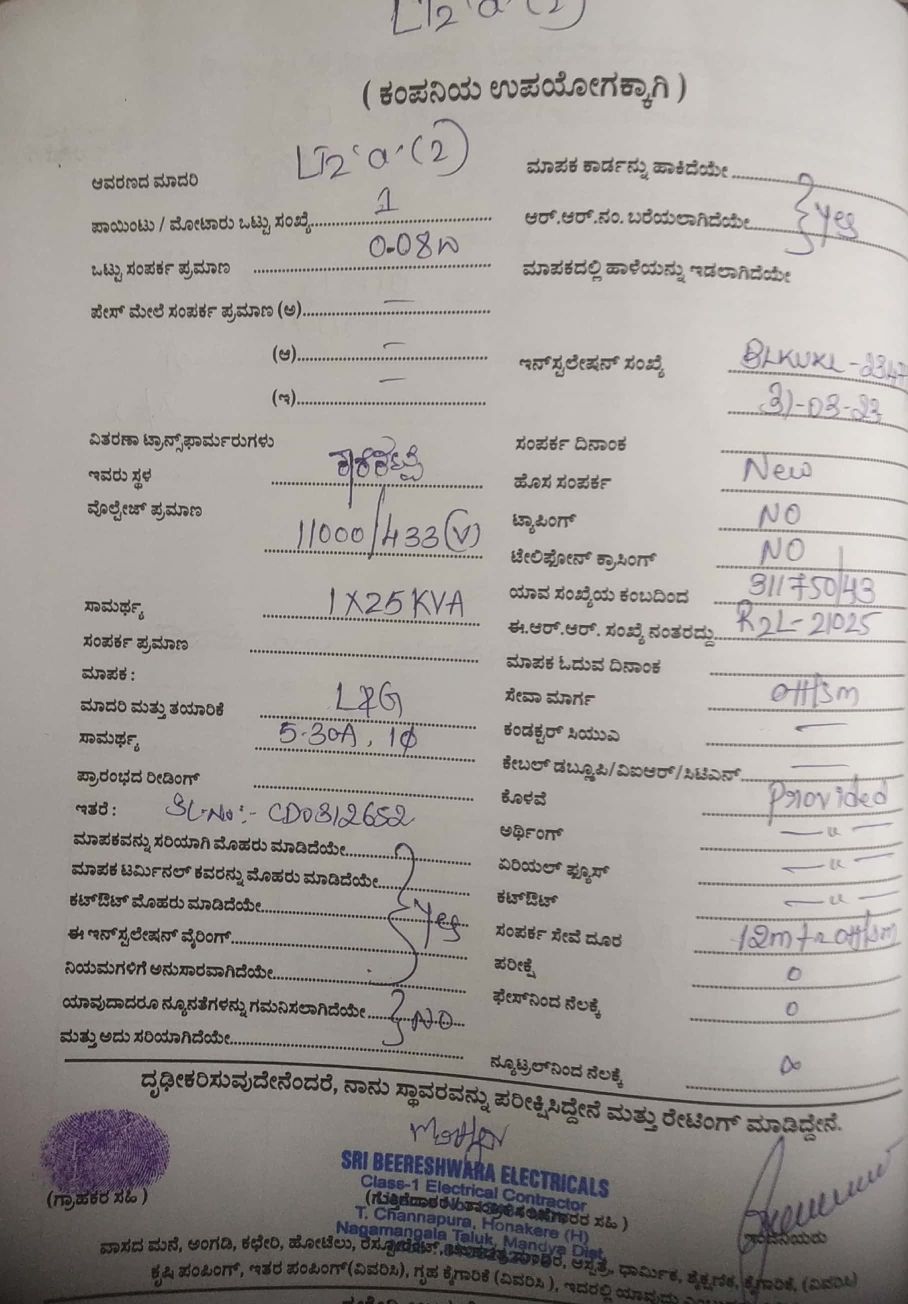 LT2 'a' (2)
( ಕಂಪನಿಯ ಉಪಯೋಗಕ್ಕಾಗಿ )
ಆವರಣದ ಮಾದರಿ LT2 'a' (2)
ಮಾಪಕ ಕಾರ್ಡನ್ನು ಹಾಕಿದೆಯೇ
ಪಾಯಿಂಟು / ಮೋಟಾರು ಒಟ್ಟು ಸಂಖ್ಯೆ 1
ಆರ್.ಆರ್.ನಂ. ಬರೆಯಲಾಗಿದೆಯೇ Yes
ಒಟ್ಟು ಸಂಪರ್ಕ ಪ್ರಮಾಣ 0.08
ಮಾಪಕದಲ್ಲಿ ಹಾಳೆಯನ್ನು ಇಡಲಾಗಿದೆಯೇ
ಪೇಸ್ ಮೇಲೆ ಸಂಪರ್ಕ ಪ್ರಮಾಣ (ಅ) —
(ಆ) —
ಇನ್‌ಸ್ಟಲೇಷನ್ ಸಂಖ್ಯೆ BLKUKL-2347
(ಇ) —
31-03-23
ವಿತರಣಾ ಟ್ರಾನ್ಸ್‌ಫಾರ್ಮರುಗಳು
ಸಂಪರ್ಕ ದಿನಾಂಕ
ಇವರು ಸ್ಥಳ
ಹೊಸ ಸಂಪರ್ಕ New
ವೊಲ್ಟೇಜ್ ಪ್ರಮಾಣ 11000/433(V)
ಟ್ಯಾಪಿಂಗ್ NO
ಟೇಲಿಫೋನ್ ಕ್ರಾಸಿಂಗ್ NO
ಸಾಮರ್ಥ್ಯ 1X25 KVA
ಯಾವ ಸಂಖ್ಯೆಯ ಕಂಬದಿಂದ 311750/43
ಈ.ಆರ್.ಆರ್. ಸಂಖ್ಯೆ ನಂತರದ್ದು R2L-21025
ಸಂಪರ್ಕ ಪ್ರಮಾಣ
ಮಾಪಕ ಓದುವ ದಿನಾಂಕ
ಮಾಪಕ :
ಮಾದರಿ ಮತ್ತು ತಯಾರಿಕೆ L&G
ಸೇವಾ ಮಾರ್ಗ OH/Sm
ಸಾಮರ್ಥ್ಯ 5-30A, 1ϕ
ಕಂಡಕ್ಟರ್ ಸಿಯುವಿ —
ಪ್ರಾರಂಭದ ರೀಡಿಂಗ್
ಕೇಬಲ್ ಡಬ್ಲೂಪಿ/ವಿಐಆರ್/ಸಿಟಿಎನ್ —
ಇತರೆ : Sl.No:- CD0312652
ಕೊಳವೆ Provided
ಮಾಪಕವನ್ನು ಸರಿಯಾಗಿ ಮೊಹರು ಮಾಡಿದೆಯೇ
ಅರ್ಥಿಂಗ್ — " —
ಮಾಪಕ ಟರ್ಮಿನಲ್ ಕವರನ್ನು ಮೊಹರು ಮಾಡಿದೆಯೇ
ಏರಿಯಲ್ ಫ್ಯೂಸ್ — " —
ಕಟ್‌ಔಟ್ ಮೊಹರು ಮಾಡಿದೆಯೇ Yes
ಕಟ್‌ಔಟ್ — " —
ಈ ಇನ್‌ಸ್ಟಲೇಷನ್ ವೈರಿಂಗ್
ಸಂಪರ್ಕ ಸೇವೆ ದೂರ 12m OH/Sm
ನಿಯಮಗಳಿಗೆ ಅನುಸಾರವಾಗಿದೆಯೇ
ಪರೀಕ್ಷೆ 0
ಯಾವುದಾದರೂ ನ್ಯೂನತೆಗಳನ್ನು ಗಮನಿಸಲಾಗಿದೆಯೇ NO
ಫೇಸ್‌ನಿಂದ ನೆಲಕ್ಕೆ 0
ಮತ್ತು ಅದು ಸರಿಯಾಗಿದೆಯೇ
ನ್ಯೂಟ್ರಲ್‌ನಿಂದ ನೆಲಕ್ಕೆ ∞
ದೃಢೀಕರಿಸುವುದೇನೆಂದರೆ, ನಾನು ಸ್ಥಾವರವನ್ನು ಪರೀಕ್ಷಿಸಿದ್ದೇನೆ ಮತ್ತು ರೇಟಿಂಗ್ ಮಾಡಿದ್ದೇನೆ.
SRI BEERESHWARA ELECTRICALS
Class-1 Electrical Contractor
(ಗ್ರಾಹಕರ ಸಹಿ )
ಸಹಿ )
T. Channapura, Honakere (H)
Nagamangala Taluk, Mandya Dist.
ಇಂಜಿನಿಯರು
ವಾಸದ ಮನೆ, ಅಂಗಡಿ, ಕಛೇರಿ, ಹೋಟೆಲು, ಆಸ್ಪತ್ರೆ, ಧಾರ್ಮಿಕ, ಶೈಕ್ಷಣಿಕ, ಕೈಗಾರಿಕೆ, (ವಿವರಿಸಿ)
ಕೃಷಿ ಪಂಪಿಂಗ್, ಇತರ ಪಂಪಿಂಗ್(ವಿವರಿಸಿ), ಗೃಹ ಕೈಗಾರಿಕೆ (ವಿವರಿಸಿ ), ಇದರಲ್ಲಿ ಯಾವುದು